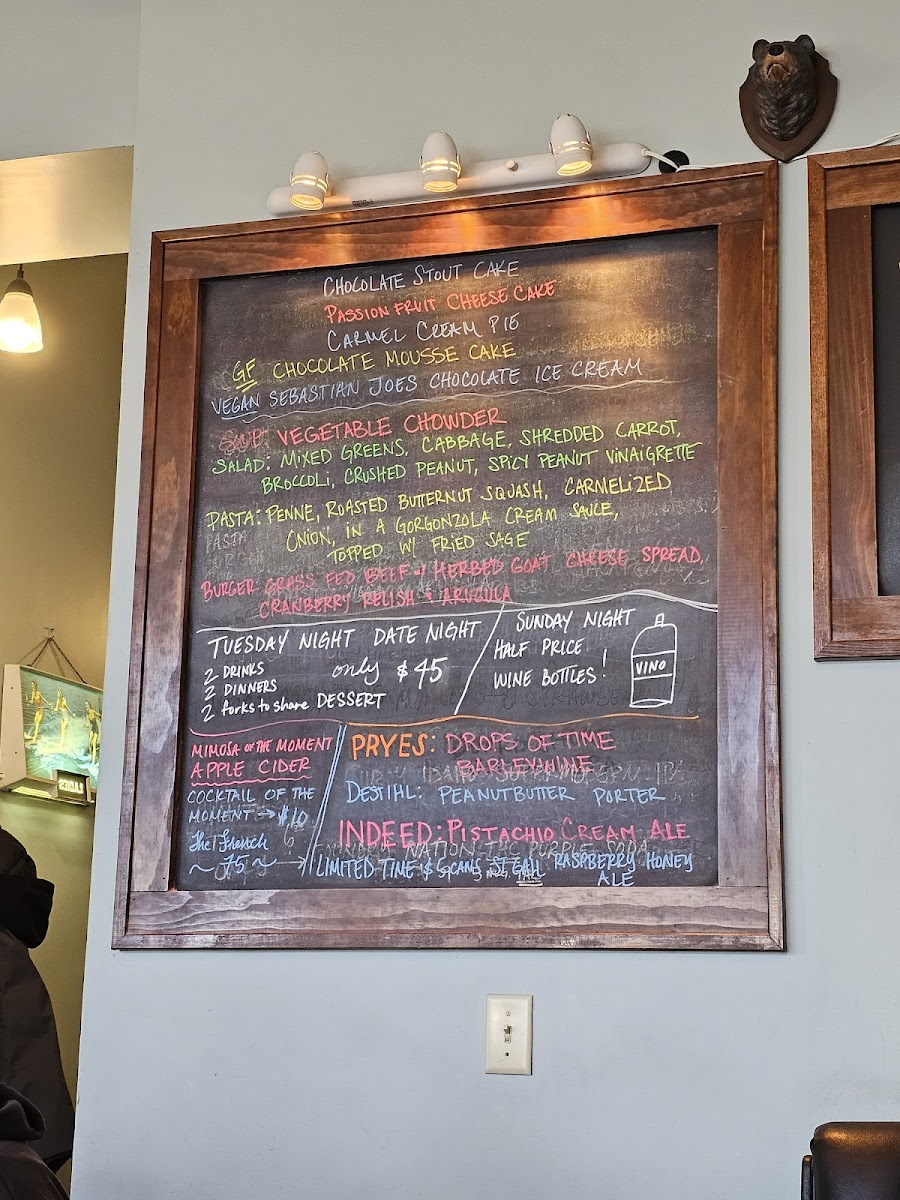 CHOCOLATE STOUT CAKE
PASSION FRUIT CHEESE CAKE
CARMEL CREAM PIE
GF CHOCOLATE MOUSSE CAKE
VEGAN SEBASTIAN JOES CHOCOLATE ICE CREAM
SOUP: VEGETABLE CHOWDER
SALAD: MIXED GREENS, CABBAGE, SHREDDED CARROT,
BROCCOLI, CRUSHED PEANUT, SPICY PEANUT VINAIGRETTE
PASTA: PENNE, ROASTED BUTTERNUT SQUASH, CARMELIZED
ONION, IN A GORGONZOLA CREAM SAUCE,
TOPPED W/ FRIED SAGE
BURGER: GRASS FED BEEF w/ HERBED GOAT CHEESE SPREAD,
CRANBERRY RELISH & ARUGULA
TUESDAY NIGHT DATE NIGHT
2 DRINKS
2 DINNERS
2 forks to share DESSERT
only $45
SUNDAY NIGHT
HALF PRICE
WINE BOTTLES!
VINO
MIMOSA OF THE MOMENT
APPLE CIDER
COCKTAIL OF THE
MOMENT → $10
The French
~ 75 ~
PRYES: DROPS OF TIME
BARLEYWINE
DESTIHL: PEANUTBUTTER PORTER
INDEED: PISTACHIO CREAM ALE
LIMITED TIME $6 CANS ST GAIL RASPBERRY HONEY
ALE